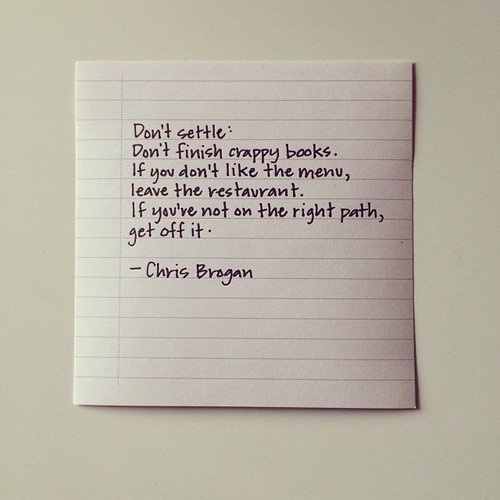 Don't settle:
Don't finish crappy books.
If you don't like the menu,
leave the restaurant.
If you're not on the right path,
get off it.
— Chris Brogan